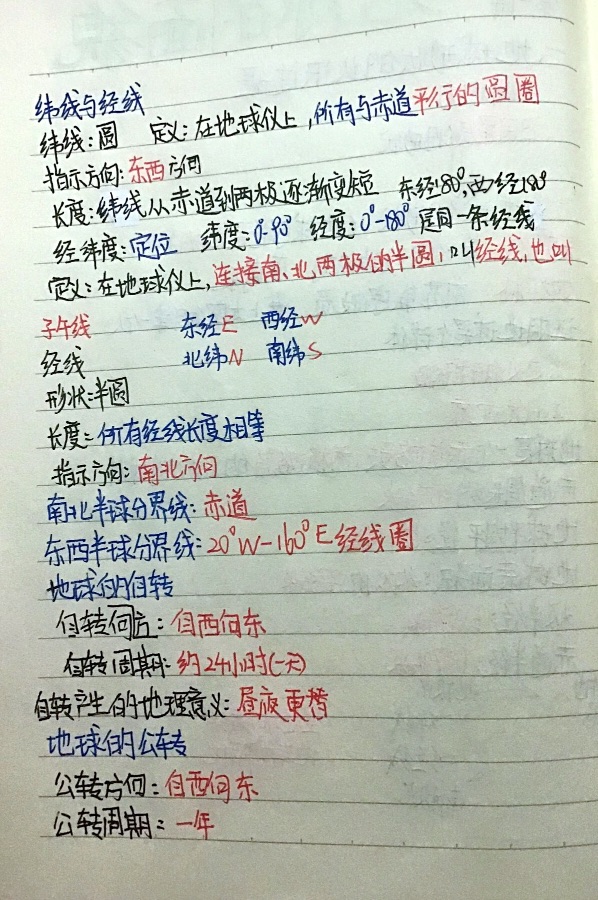 纬线与经线
纬线:圆 定义:在地球仪上,所有与赤道平行的圆圈
指示方向:东西方向
长度:纬线从赤道到两极逐渐变短 东经180°,西经180°
经纬度:定位 纬度:0°-90° 经度:0°-180° 是同一条经线
定义:在地球仪上,连接南、北,两极的半圆,叫经线,也叫
子午线 东经E 西经W
经线 北纬N 南纬S
形状:半圆
长度:所有经线长度相等
指示方向:南北方向
南北半球分界线:赤道
东西半球分界线:20°W-160°E经线圈
地球的自转
自转方向:自西向东
自转周期:约24小时(一天)
自转产生的地理意义:昼夜更替
地球的公转
公转方向:自西向东
公转周期:一年